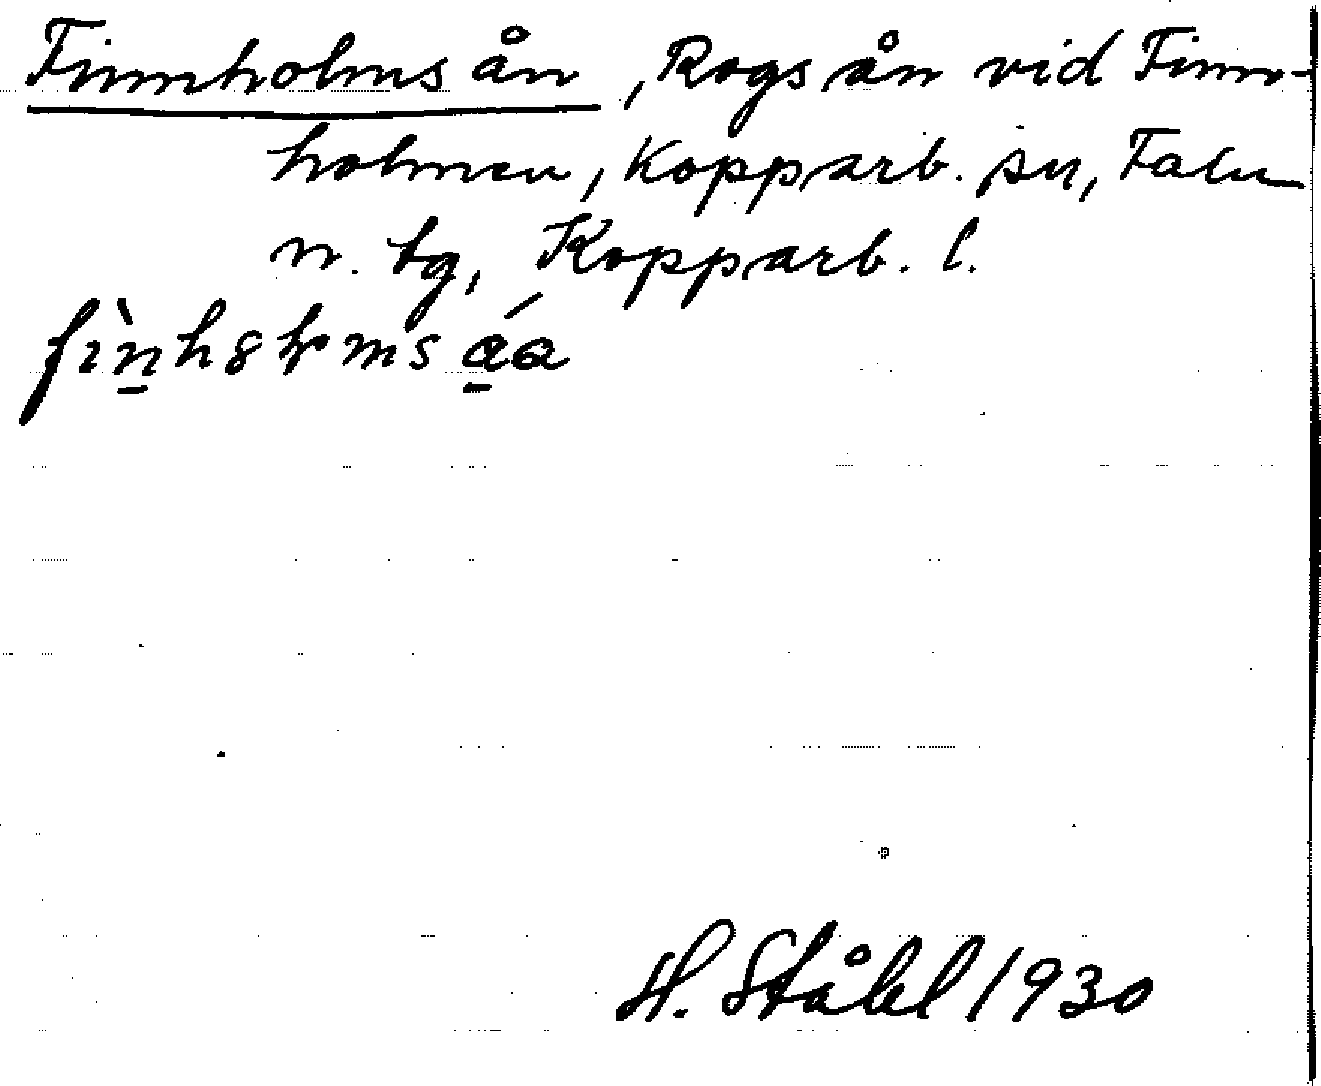 Finnholmsån, Rogsån vid Finn-
holmen, Kopparb. sn, Falu
n. tg, Kopparb. l.
H. Ståhl 1930